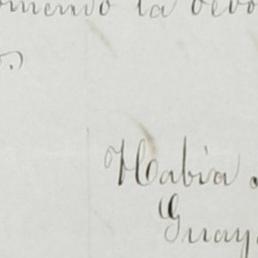 omendó la devo
Habia
Guay